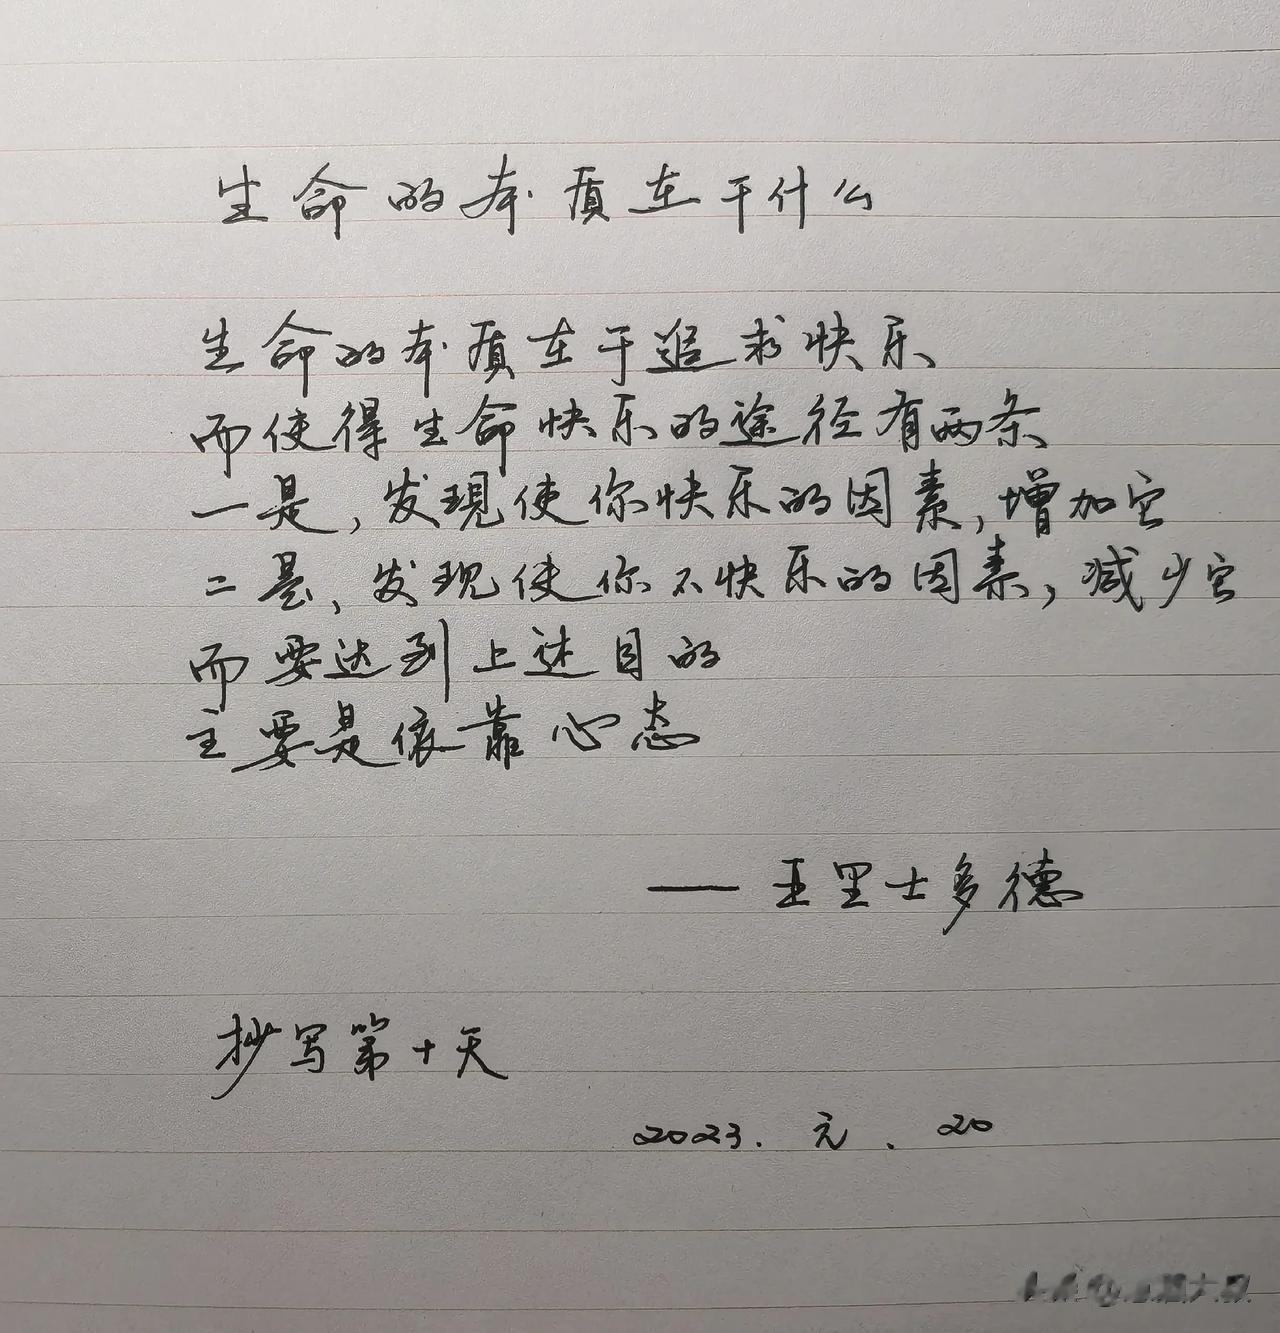 生命的本质在于什么
生命的本质在于追求快乐
而使得生命快乐的途径有两条
一是，发现使你快乐的因素，增加它
二是，发现使你不快乐的因素，减少它
而要达到上述目的
主要是依靠心态
—— 亚里士多德
抄写第十天
2023. 元. 20